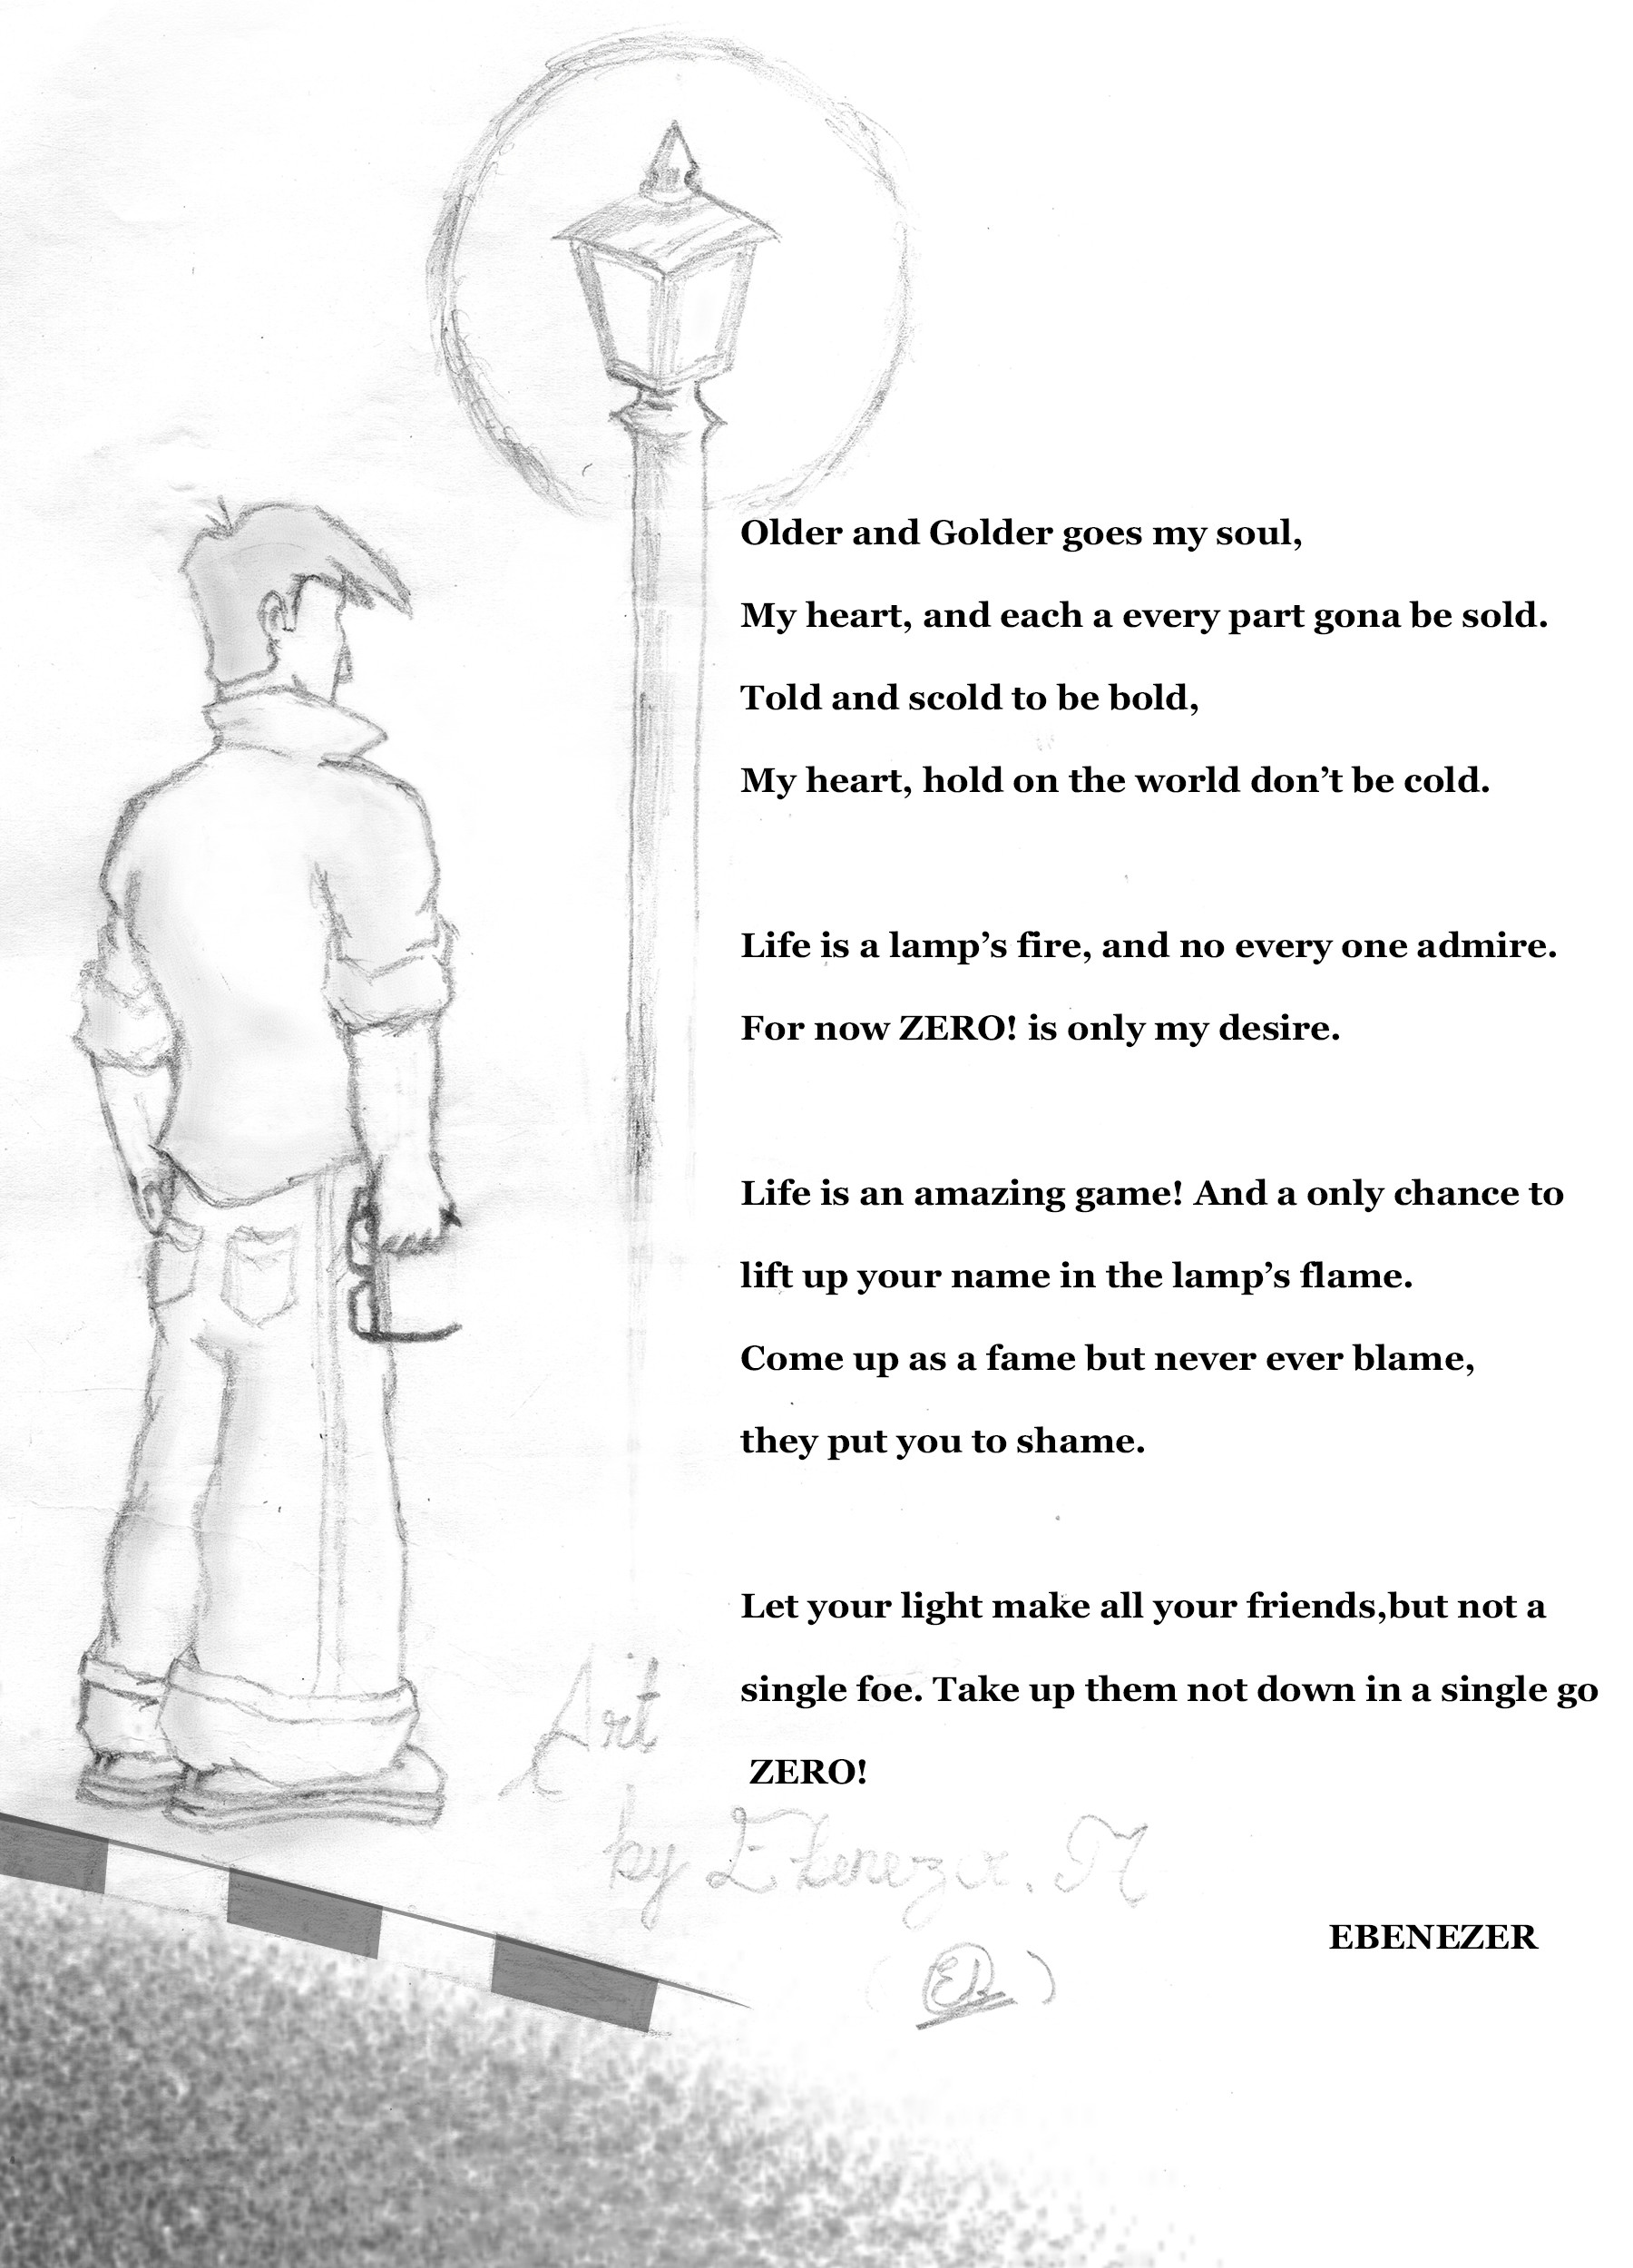 Older and Golder goes my soul,
My heart, and each a every part gona be sold.
Told and scold to be bold,
My heart, hold on the world don’t be cold.
Life is a lamp’s fire, and no every one admire.
For now ZERO! is only my desire.
Life is an amazing game! And a only chance to
lift up your name in the lamp’s flame.
Come up as a fame but never ever blame,
they put you to shame.
Let your light make all your friends,but not a
single foe. Take up them not down in a single go
ZERO!
Art
by Ebenezer. M
EBENEZER